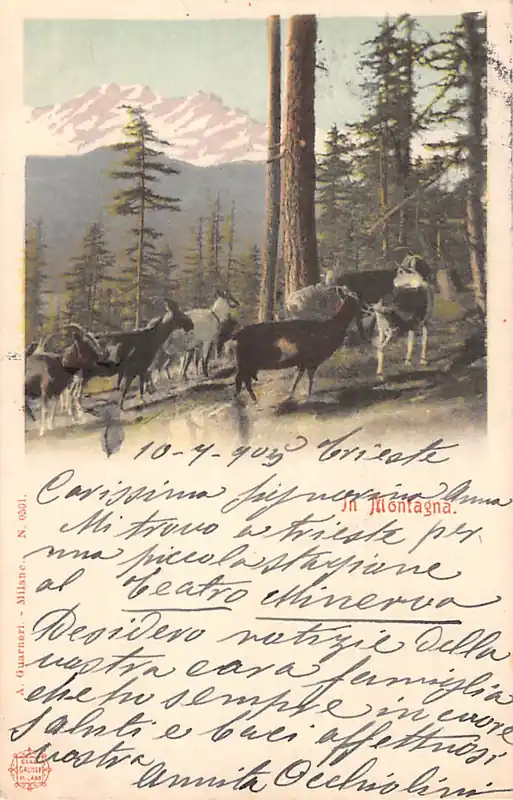 10-7-903 Trieste
Carissima signorina Anna
In Montagna.
Mi trovo a trieste per
una piccola stagione
al Teatro Minerva
Desidero notizie della
vostra cara famiglia
che ho sempre in cuore
Saluti e baci affettuosi
vostra
Annita Occhiolini
A. Guarneri. - Milano. N. 0301.